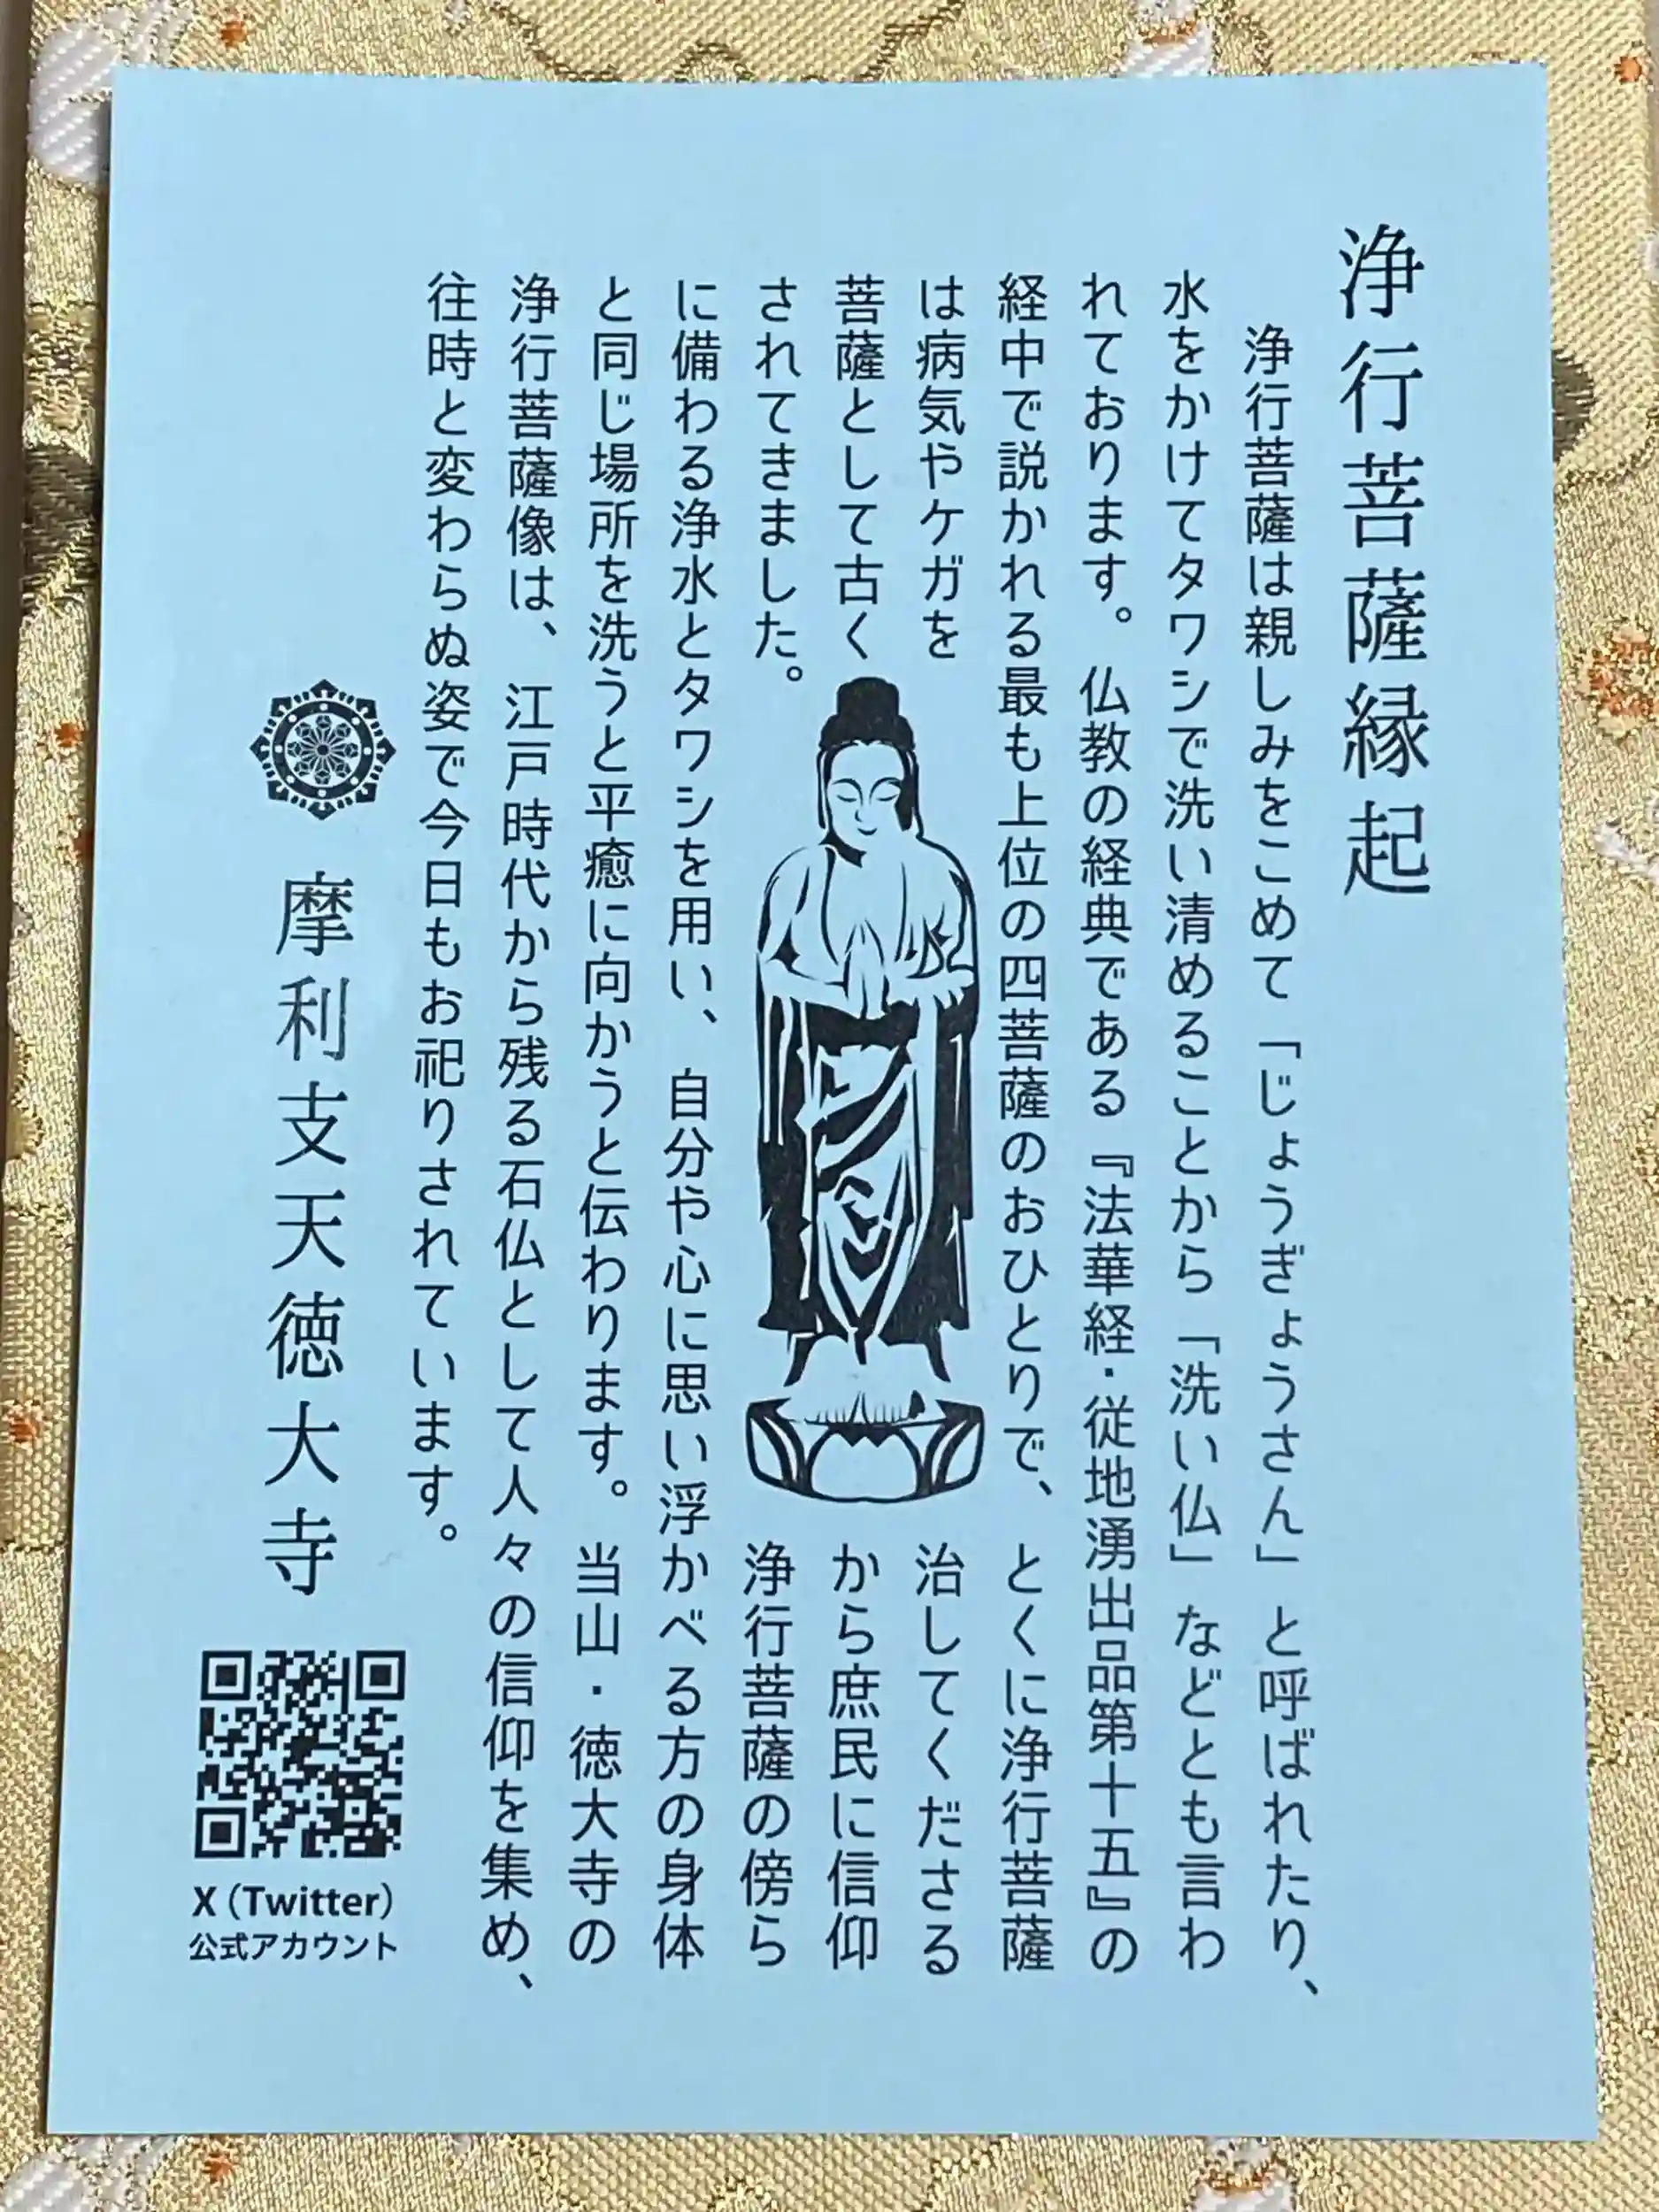 浄行菩薩縁起
浄行菩薩は親しみをこめて「じょうぎょうさん」と呼ばれたり、
水をかけてタワシで洗い清めることから「洗い仏」などとも言わ
れております。仏教の経典である『法華経・従地湧出品第十五』の
経中で説かれる最も上位の四菩薩のおひとりで、とくに浄行菩薩
は病気やケガを治してくださる
菩薩として古くから庶民に信仰
されてきました。浄行菩薩の傍ら
に備わる浄水とタワシを用い、自分や心に思い浮かべる方の身体
と同じ場所を洗うと平癒に向かうと伝わります。当山・徳大寺の
浄行菩薩像は、江戸時代から残る石仏として人々の信仰を集め、
往時と変わらぬ姿で今日もお祀りされています。
摩利支天徳大寺
X（Twitter）
公式アカウント